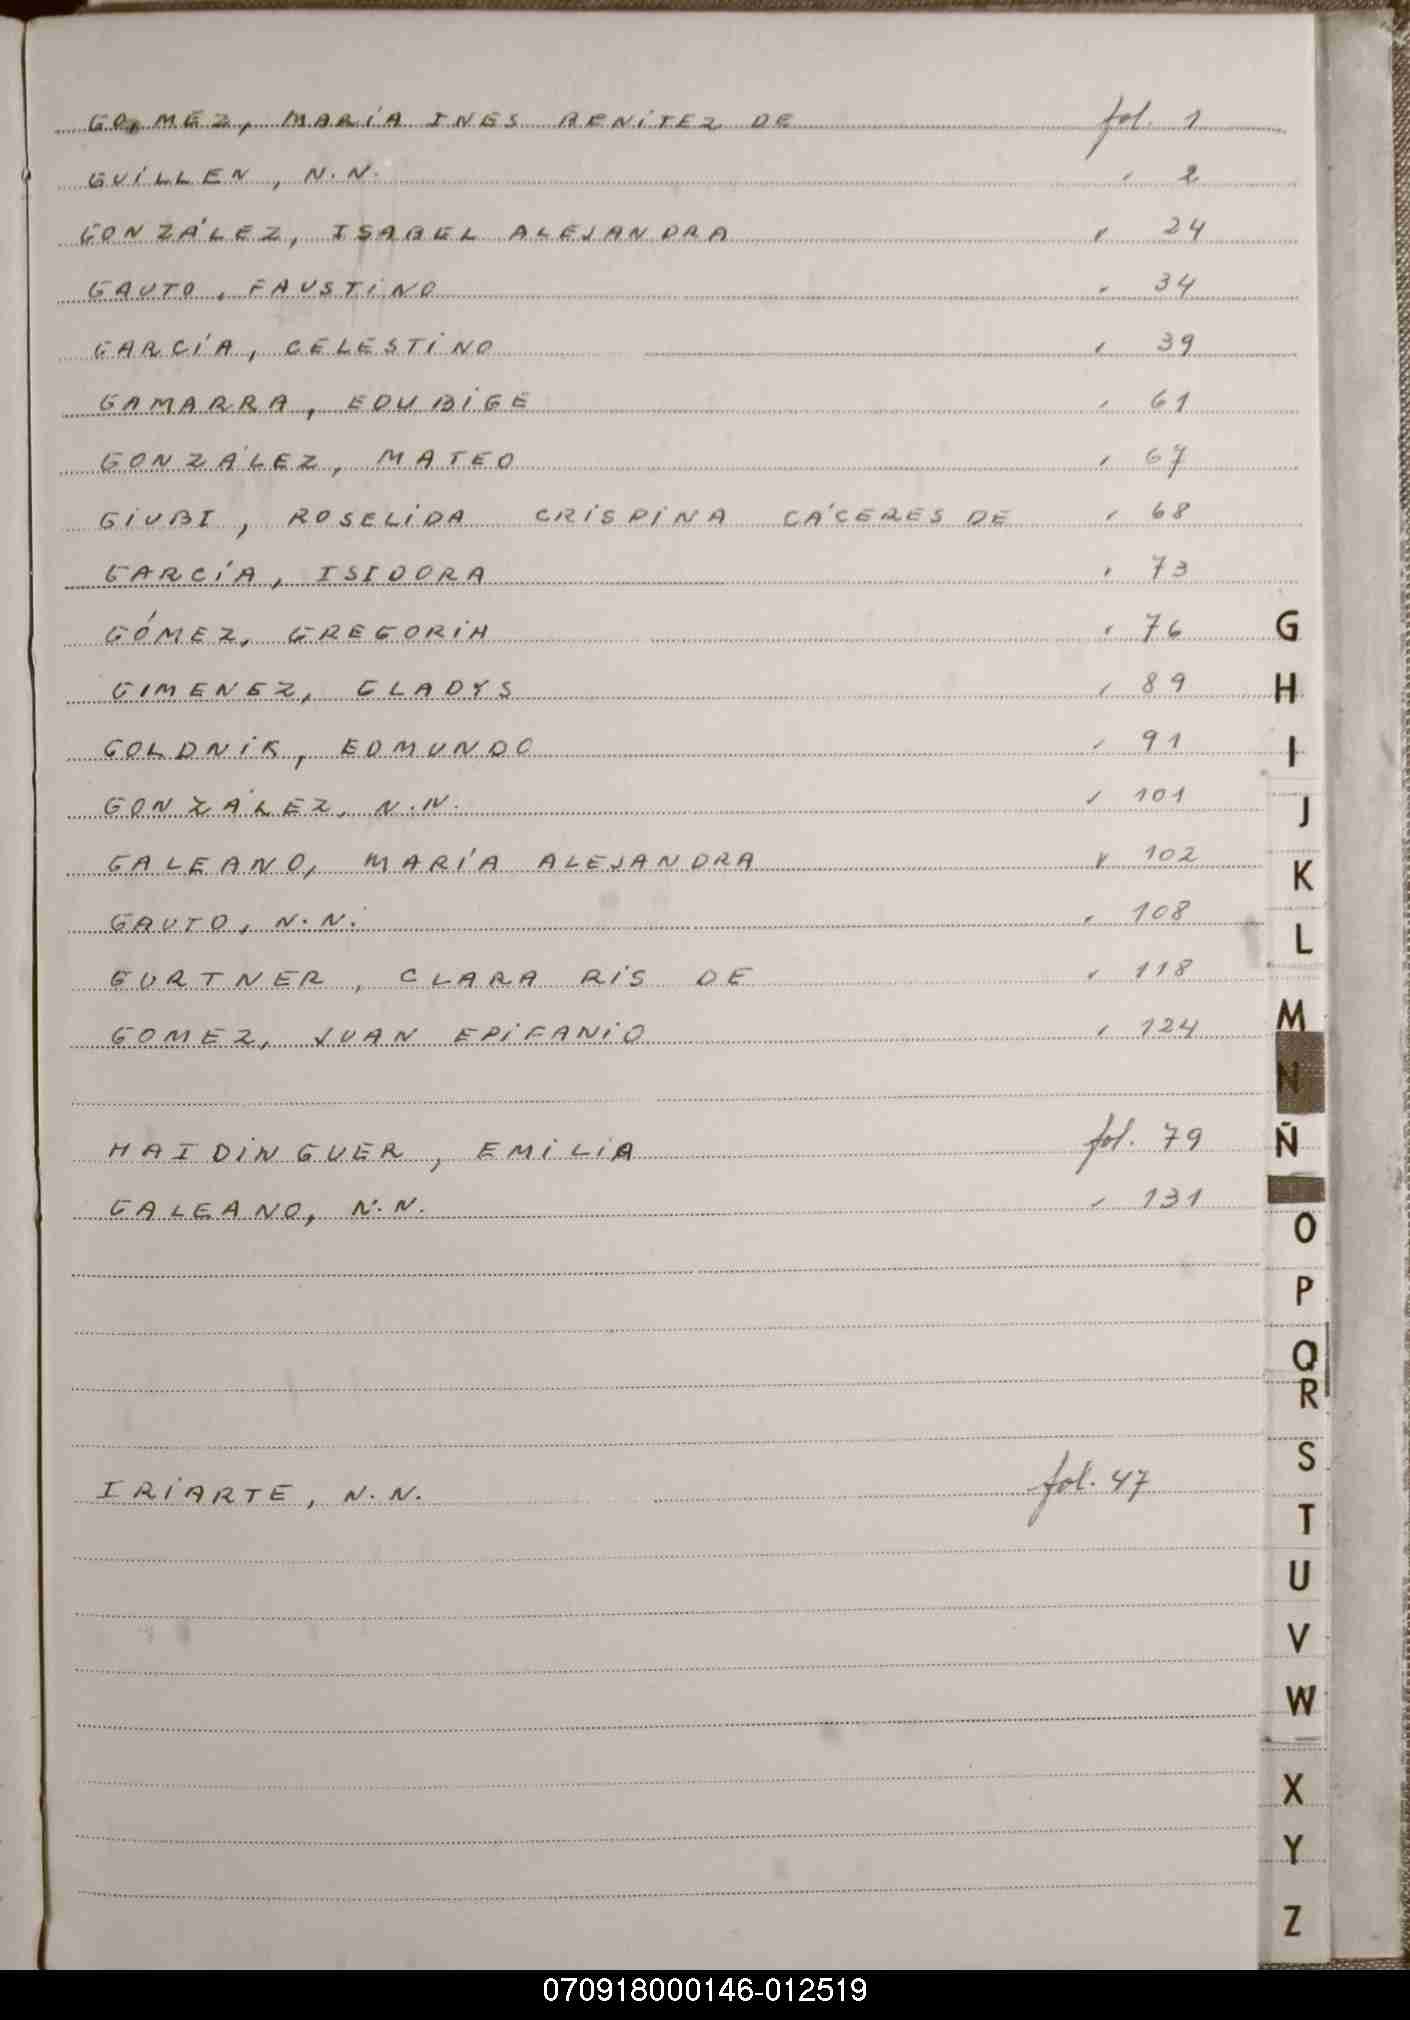 GOMEZ, MARÍA INES BENITEZ DE fol. 1
GUILLEN, N.N. " 2
GONZÁLEZ, ISABEL ALEJANDRA " 24
GAUTO, FAUSTINO " 34
GARCÍA, CELESTINO " 39
GAMARRA, EDUBIGE " 61
GONZÁLEZ, MATEO " 67
GIUBI, ROSELIDA CRISPINA CÁCERES DE " 68
GARCÍA, ISIDORA " 73
GÓMEZ, GREGORIA " 76
GIMENEZ, GLADYS " 89
GOLDNIK, EDMUNDO " 91
GONZÁLEZ, N.N. " 101
GALEANO, MARÍA ALEJANDRA " 102
GAUTO, N.N. " 108
GURTNER, CLARA RIS DE " 118
GOMEZ, JUAN EPIFANIO " 124
HAIDINGUER, EMILIA fol. 79
GALEANO, N.N. " 131
IRIARTE, N.N. fol. 47
G
H
I
J
K
L
M
N
Ñ
O
P
Q
R
S
T
U
V
W
X
Y
Z
070918000146-012519